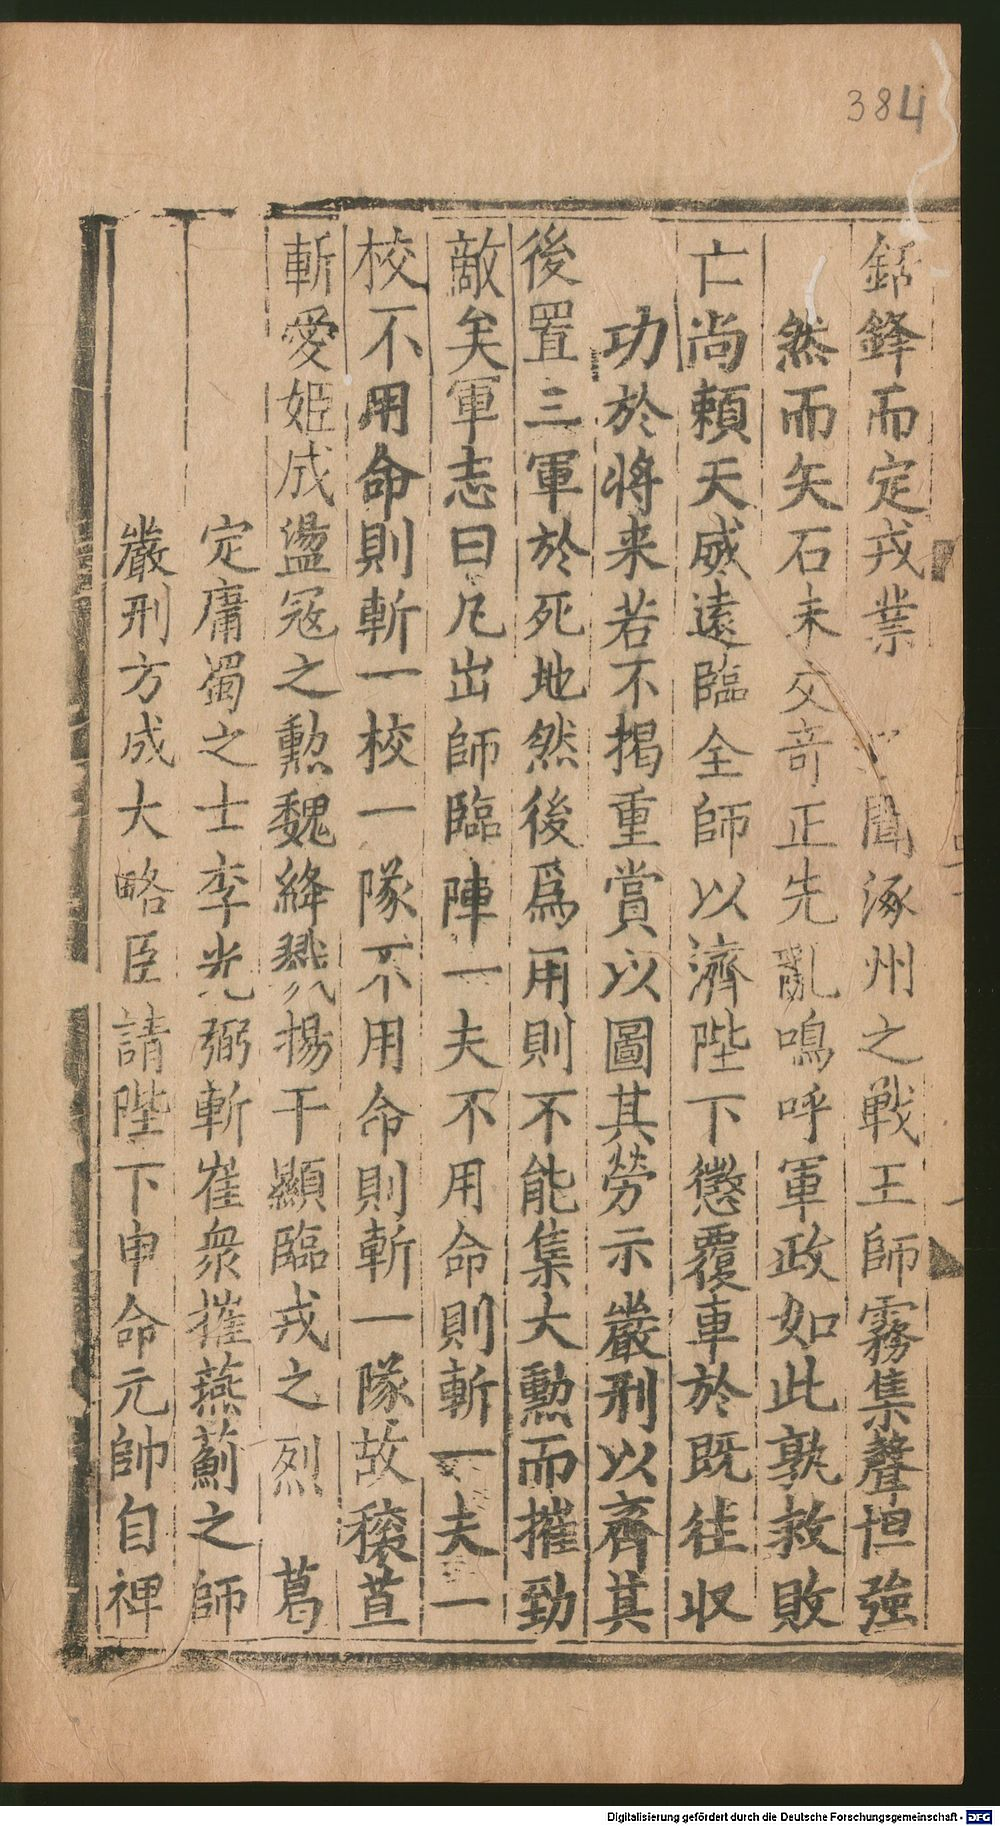 384
銛鋒而定戎業 聞涿州之戰王師霧集聲恒強
然而矢石未交竒正先亂嗚呼軍政如此孰救敗
亡尚頼天威遠臨全師以濟陛下懲覆車於既徃収
功於將来若不揭重賞以圖其勞示嚴刑以齊其
後置三軍於死地然後爲用則不能集大勲而摧勁
敵矣軍志曰凡出師臨陣一夫不用命則斬一夫一
校不用命則斬一校一隊不用命則斬一隊故穰苴
斬愛姬成盪冦之勲魏絳戮揚干顯臨戎之烈 葛
定庸蜀之士李光弼斬崔衆摧燕薊之師
嚴刑方成大略臣請陛下申命元帥自裨
Digitalisierung gefördert durch die Deutsche Forschungsgemeinschaft - DFG